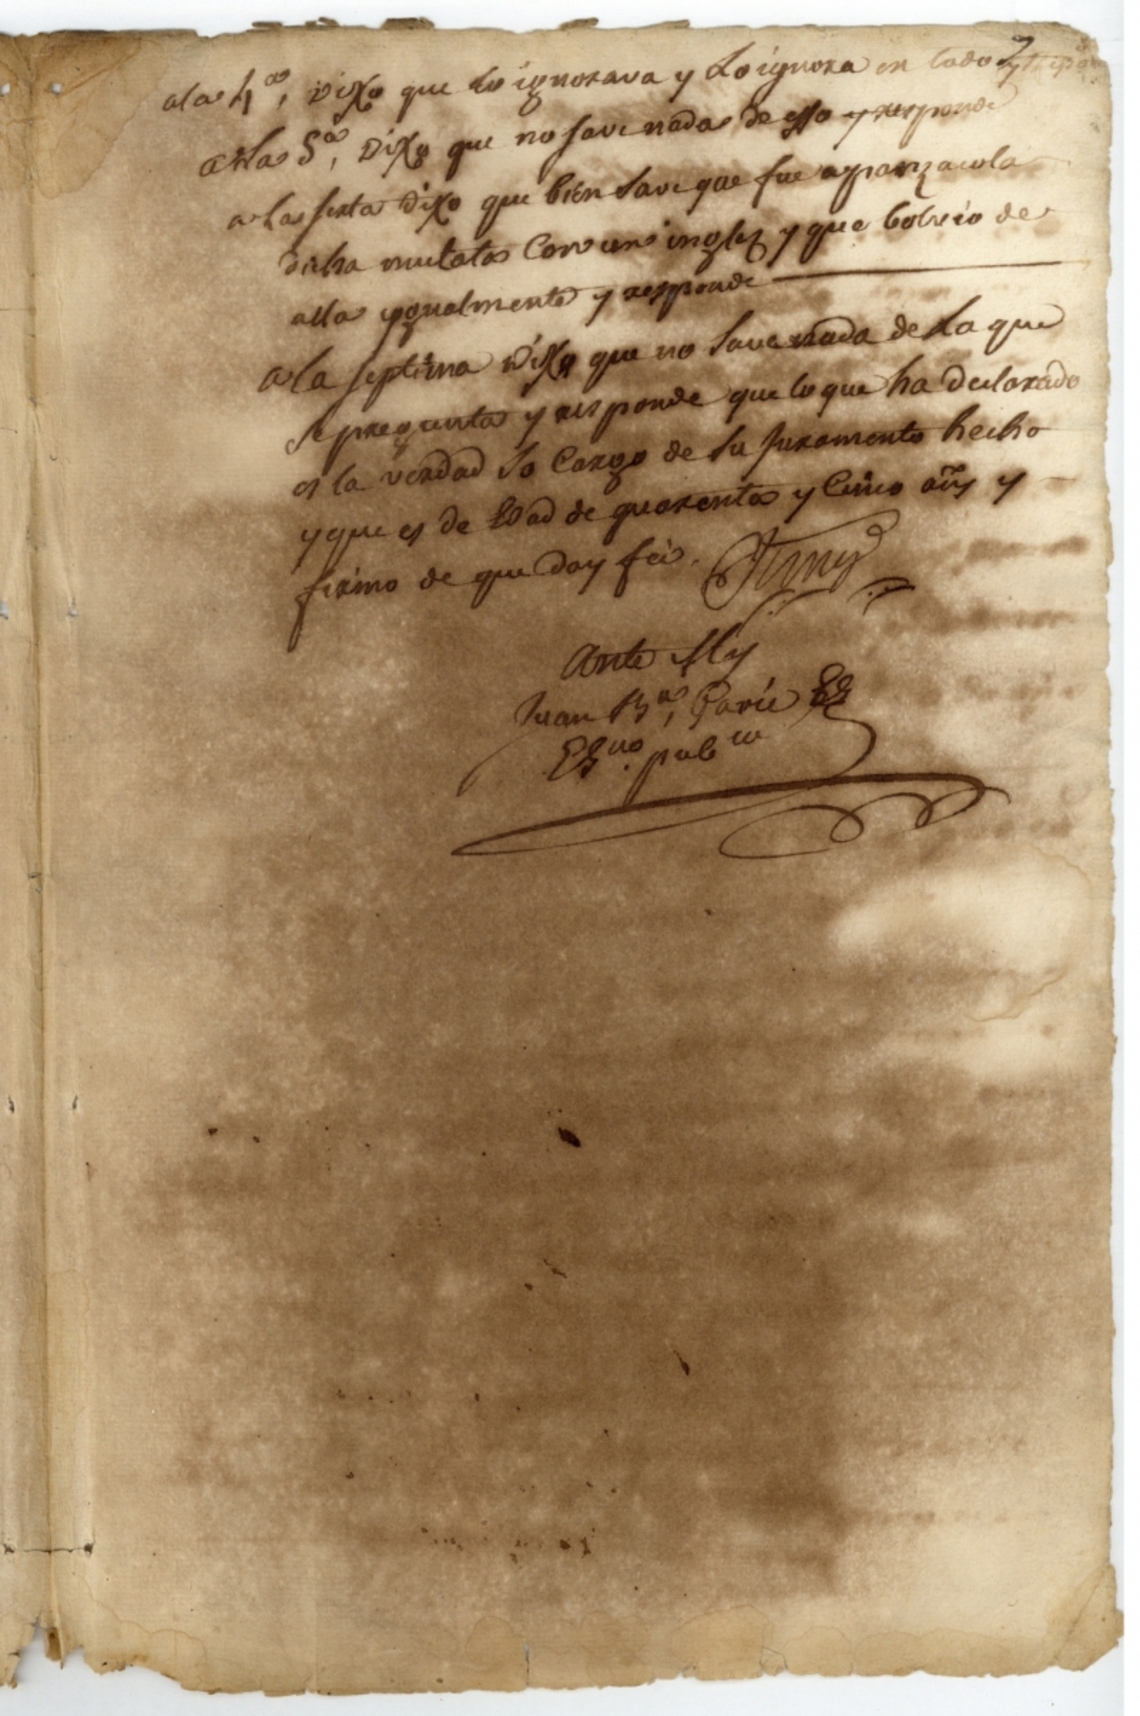 7
a la 4.ª, Dixo que lo ignorava y Lo ignora en todo
a la 5.ª, Dixo que no save nada de esso y responde
a la sexta Dixo que bien save que fue a panzacola
dicha mulata Con un inglez y que bolvio de
alla ygualmente y responde
a la septima Dixo que no save nada de La que
se pregunta y responde que lo que ha declarado
es la verdad so Cargo de su Juramento hecho
y que es de Edad de quarenta y Cinco años y
firmo de que Doy feé.
Ante My
Juan B.ta, Garic
Es.no pub.co